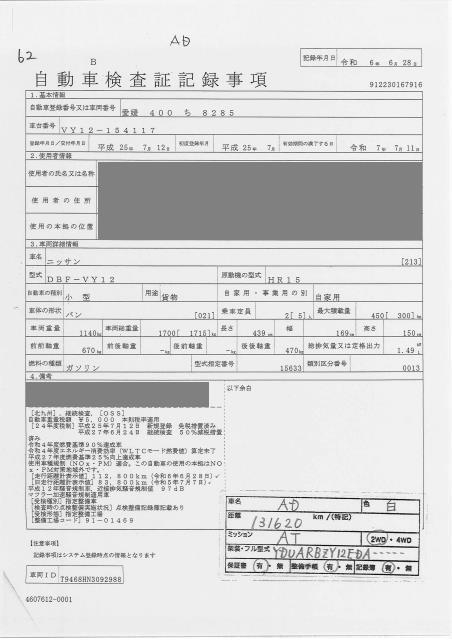 AD
62
B
自動車検査証記録事項
記録年月日 令和 6年 6月 28日
912230167916
1.基本情報
自動車登録番号又は車両番号 愛媛 400 ち 8285
車台番号 VY12-154117
登録年月日/交付年月日 平成 25年 7月 12日 初度登録年月 平成 25年 7月 有効期間の満了する日 令和 7年 7月 11日
2.使用者情報
使用者の氏名又は名称
使用者の住所
使用の本拠の位置
3.車両詳細情報
車名 ニッサン [213]
型式 DBF-VY12 原動機の型式 HR15
自動車の種別 小型 用途 貨物 自家用・事業用の別 自家用
車体の形状 バン [021] 乗車定員 2[ 5]人 最大積載量 450[ 300]kg
車両重量 1140kg 車両総重量 1700[ 1715]kg 長さ 439cm 幅 169cm 高さ 150cm
前前軸重 670kg 前後軸重 -kg 後前軸重 -kg 後後軸重 470kg 総排気量又は定格出力 1.49 L
燃料の種類 ガソリン 型式指定番号 15633 類別区分番号 0013
4.備考
以下余白
[北九州],継続検査,[OSS]
自動車重量税額 ¥5,000 本則税率適用
[24年度税制]平成25年7月12日 新規登録 免税措置済み
平成27年6月24日 継続検査 50%減税措置
済み
令和4年度燃費基準90%達成車
令和4年度エネルギー消費効率(WLTCモード燃費値)算定未了
平成27年度燃費基準25%向上達成車
使用車種規制(NOx・PM)適合,この自動車の使用の本拠はNO
x・PM対策地域外です。
[走行距離計表示値]112,800km(令和6年6月28日)
[旧走行距離計表示値]83,800km(令和5年7月7日)
平成12年騒音規制車,近接排気騒音規制値 97dB
マフラー加速騒音規制適用車
[受検種別]指定整備車
[検査時の点検整備実施状況]点検整備記録簿記載あり
[受検形態]指定整備工場
[整備工場コード]91-01469
車名 AD 色 白
距離 131620 km/(特記)
ミッション AT 2WD・4WD
架装・フル型式 YDUARBZY12EDA
保証書 有・無 整備手帳 有・無 記録簿 有・無
[注意事項]
記録事項はシステム登録時点の情報となります
車両ID T9468HN3092988
4607612-0001